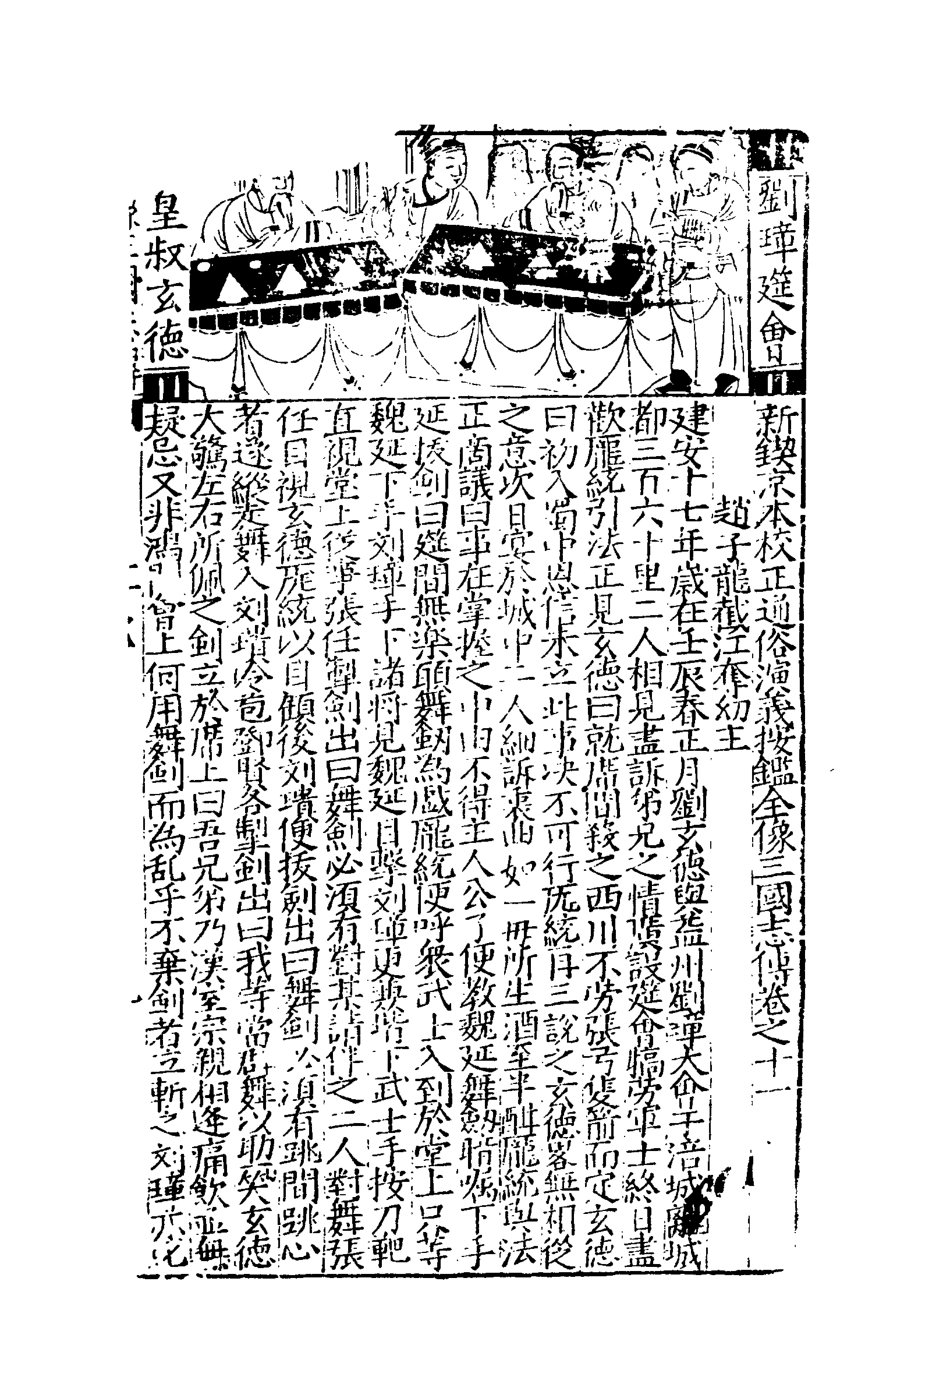 劉璋筵會
皇叔玄德
新鍥京本校正通俗演義按鑑全像三國志傳卷之十一
趙子龍截江奪幼主
建安十七年歲在壬辰春正月劉玄德與益州劉璋大會于涪城離城
都三百六十里二人相見盡訴弟兄之情璋設筵會犒勞軍士終日盡
歡龐統引法正見玄德曰就席間殺之西川不勞張弓隻箭而定玄德
曰初入蜀中恩信未立此事决不可行庞統再三說之玄德畧無相從
之意次日宴於城中二人細訴衷曲如一母所生酒至半酣龐統與法
正商議曰事在掌握之中由不得主人公了便教魏延舞劍暗嘱下手
延拔劍曰筵間無楽願舞劔為戲龐統便呼衆武士入到於堂上只等
魏延下手刘璋手下諸將見魏延目擊刘璋更兼堦下武士手按刀靶
直視堂上從事張任掣劍出曰舞劍必須有對某請伴之二人對舞張
任目視玄德庞統以目顧後刘璝便拔劍出曰舞劍必須有跳間跳心
者遂縱步舞入刘璝冷苞鄧賢各掣劍出曰我等當群舞以助笑玄德
大驚左右所佩之劍立於席上曰吾兄弟乃漢室宗親相逢痛飲並無
疑忌又非鴻門會上何用舞劍而為乱乎不棄劍者立斬之刘璋亦叱